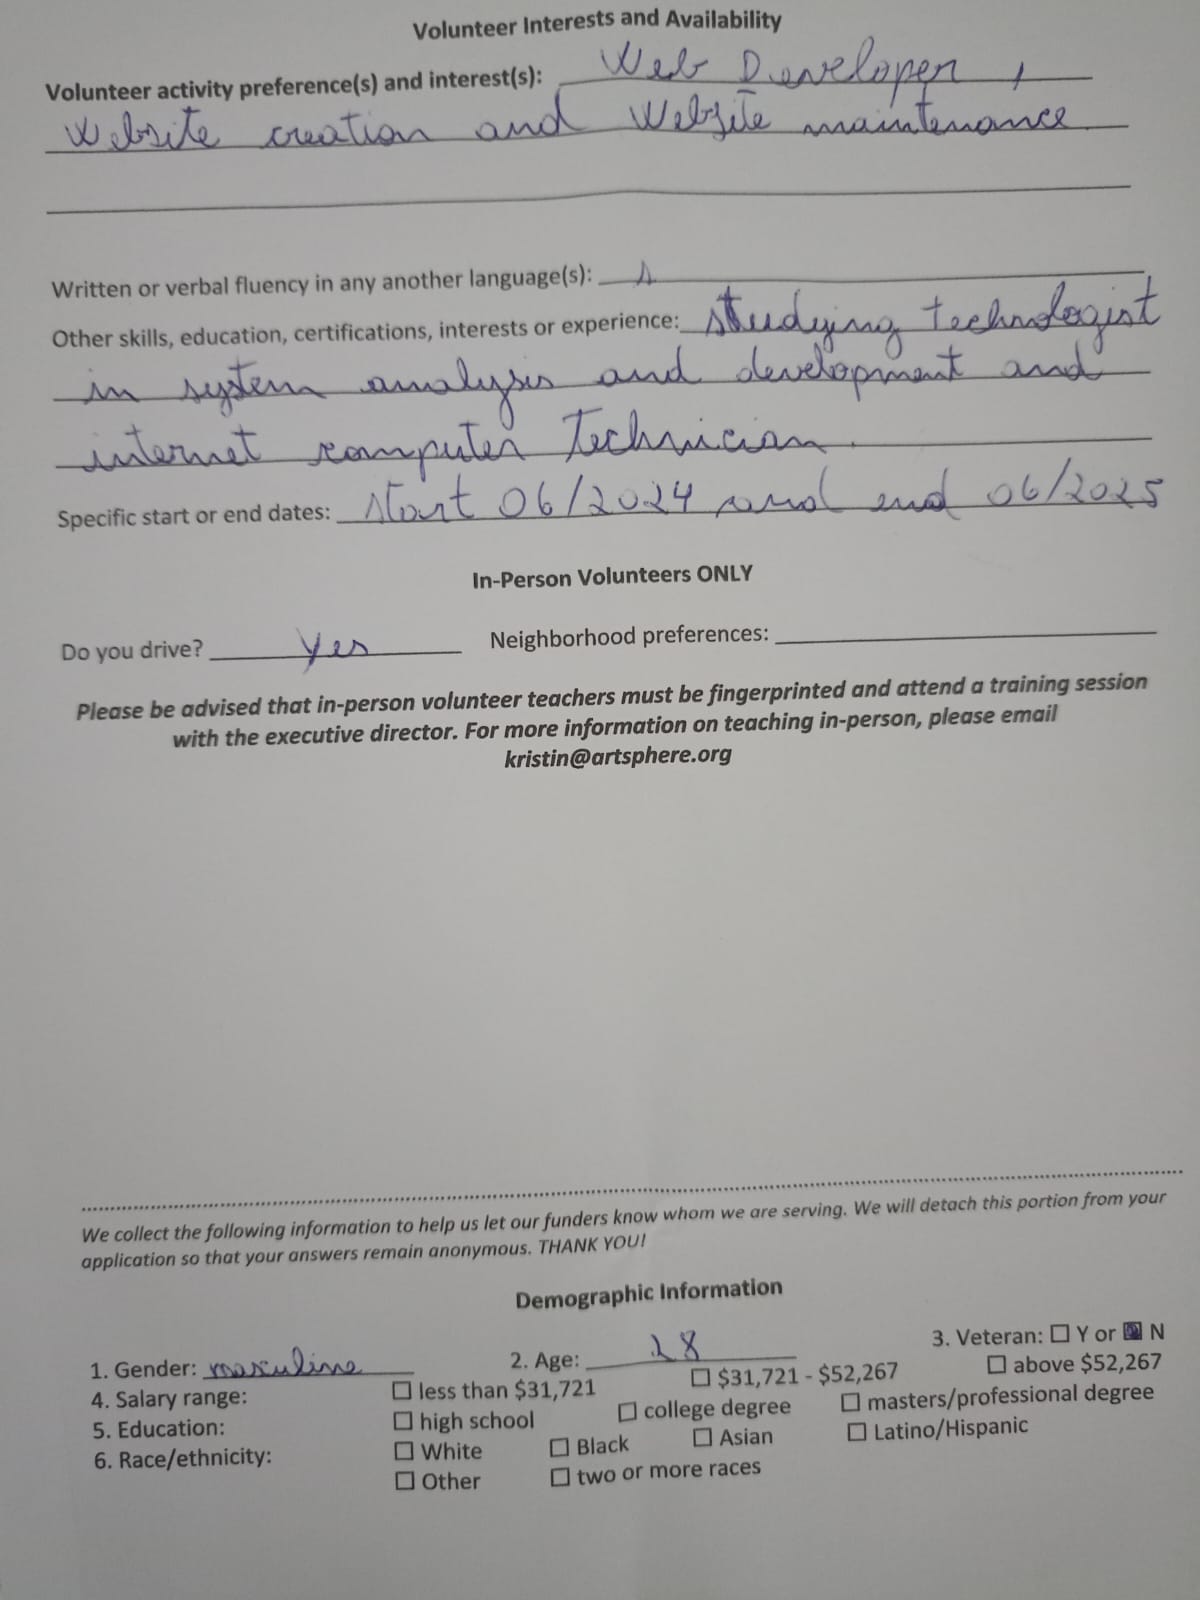 Volunteer Interests and Availability
Volunteer activity preference(s) and interest(s): Web Developer,
Website creation and Website maintenance
Written or verbal fluency in any another language(s):
Other skills, education, certifications, interests or experience: studying technologist
in system analysis and development and
internet computer technician.
Specific start or end dates: start 06/2024 and end 06/2025
In-Person Volunteers ONLY
Do you drive? Yes Neighborhood preferences:
Please be advised that in-person volunteer teachers must be fingerprinted and attend a training session
with the executive director. For more information on teaching in-person, please email
kristin@artsphere.org
We collect the following information to help us let our funders know whom we are serving. We will detach this portion from your
application so that your answers remain anonymous. THANK YOU!
Demographic Information
1. Gender: masculine 2. Age: 28 3. Veteran: ☐ Y or ☒ N
4. Salary range: ☐ less than $31,721 ☐ $31,721 - $52,267 ☐ above $52,267
5. Education: ☐ high school ☐ college degree ☐ masters/professional degree
6. Race/ethnicity: ☐ White ☐ Black ☐ Asian ☐ Latino/Hispanic
☐ Other ☐ two or more races